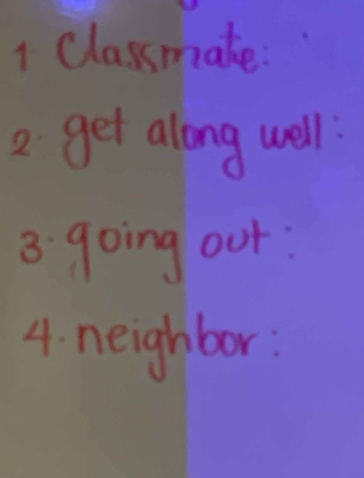 1 Classmate:
2. get along well:
3. going out:
4. neighbor: